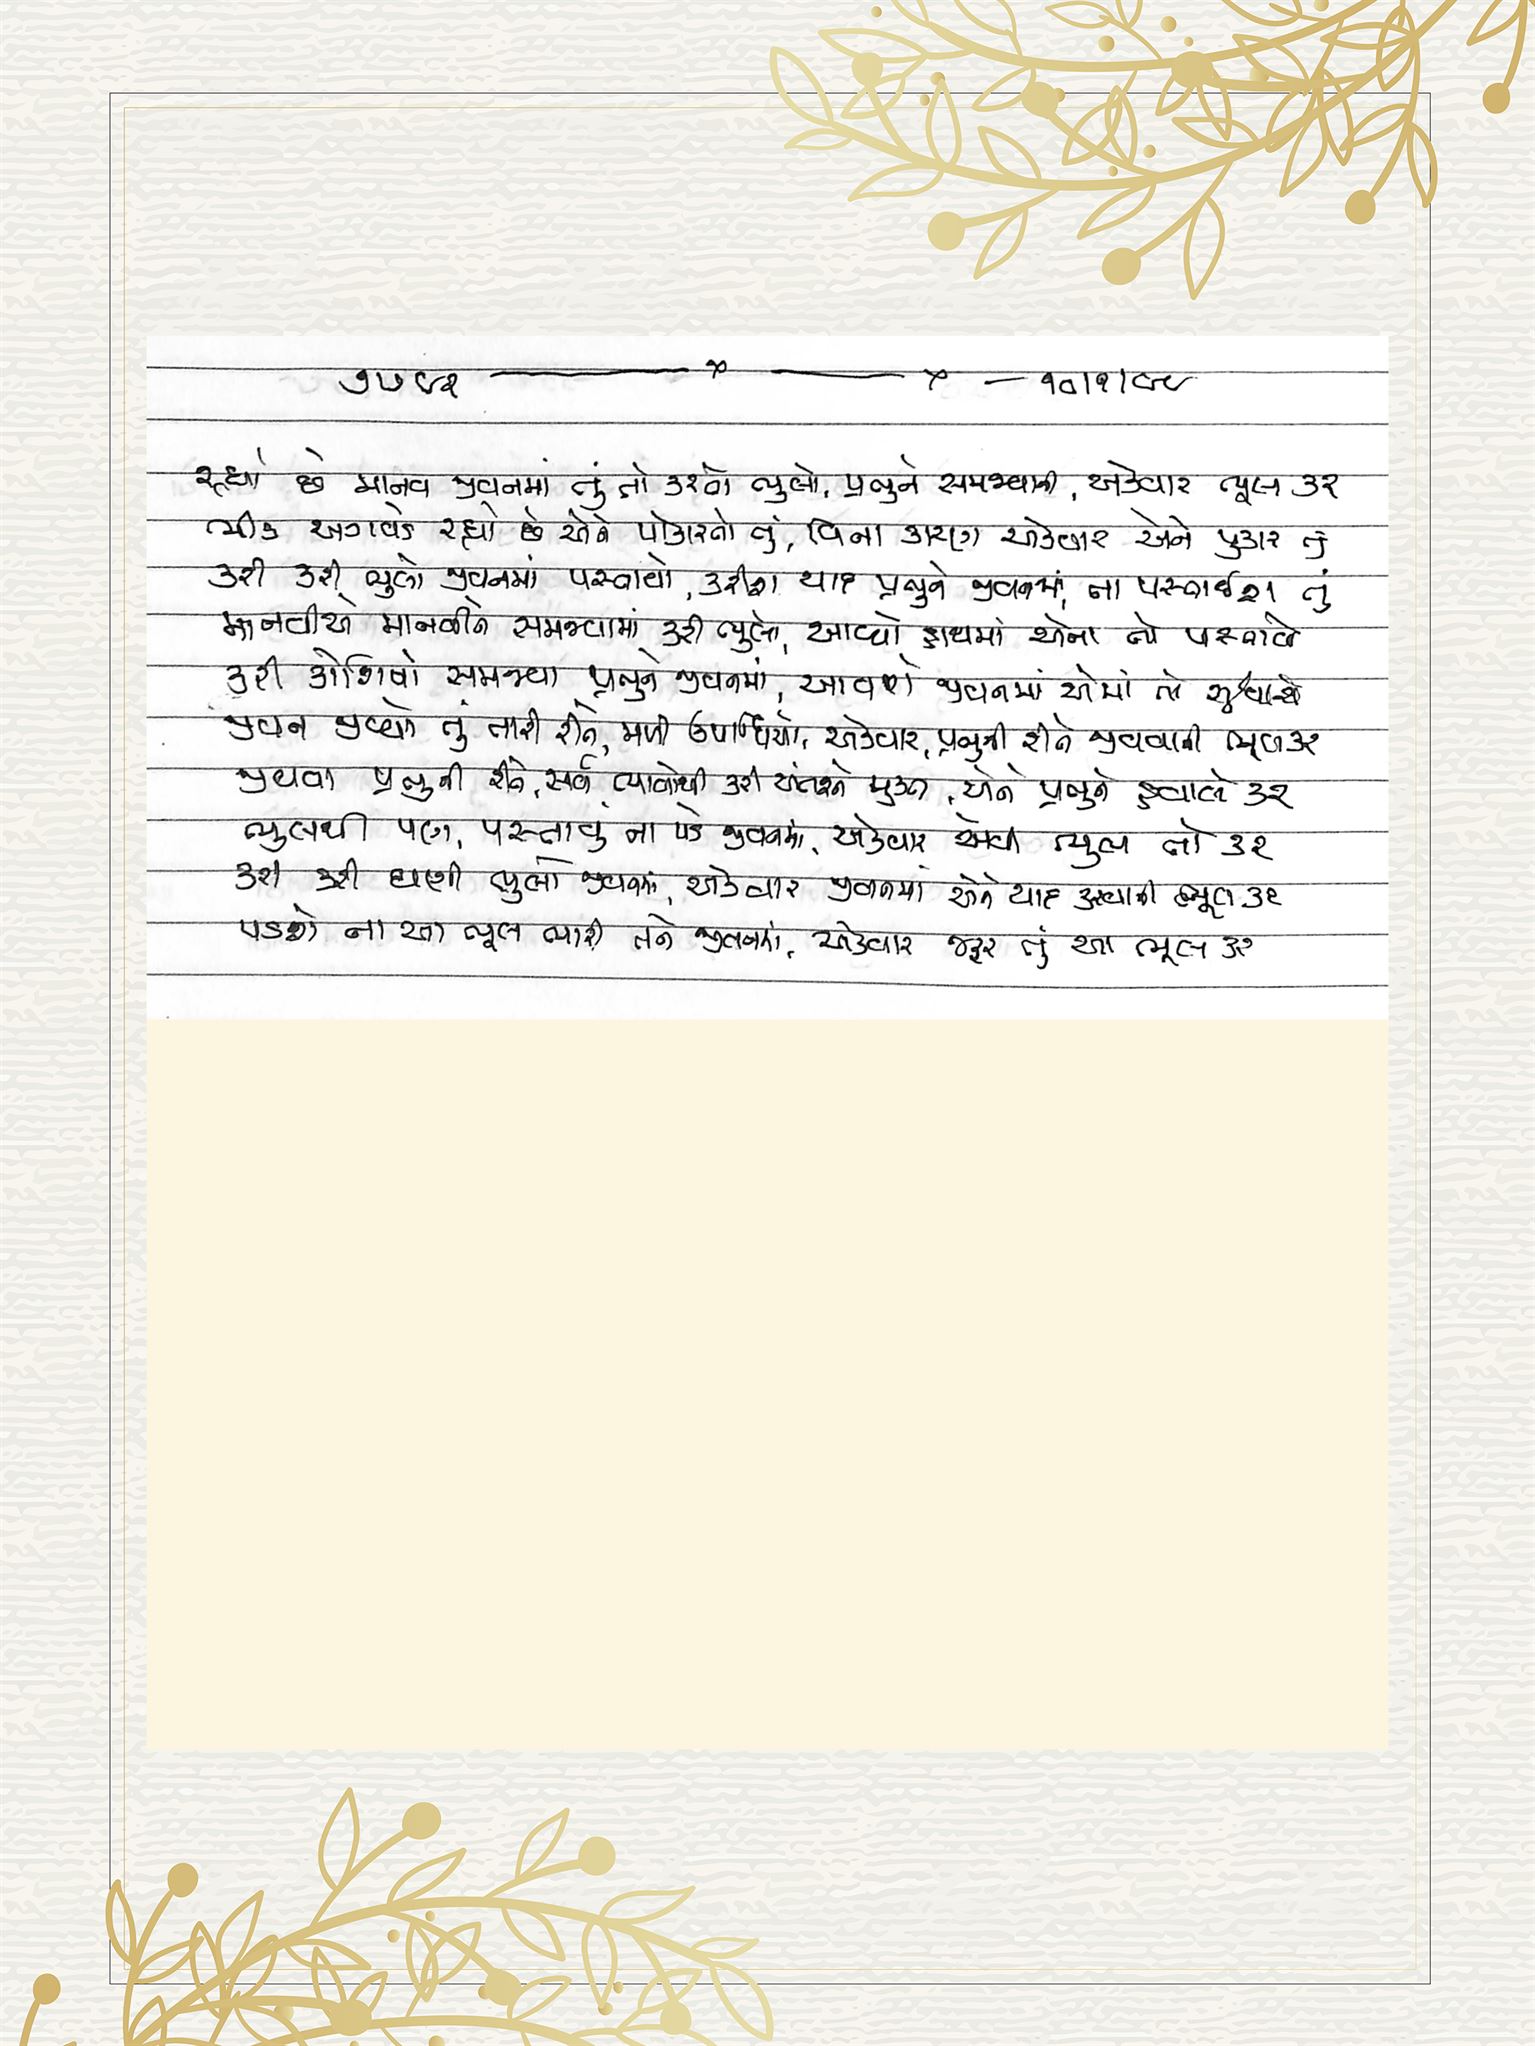 ૭૫૯૨ ——— x ——— x — ૧૦/૧/૯૯
રહ્યો છે માનવ જીવનમાં તું તો કરતો ભુલો, પ્રભુને સમજવાની, એકવાર ભૂલ કર
ભીડ અગવડે રહ્યો છે એને પોકારતો તું, વિના કારણ એકવાર એને પુકાર તું
કરી કરી ભુલો જીવનમાં પસ્તાયો, કરીશ યાદ પ્રભુને જીવનમાં, ના પસ્તાઈશ તું
માનવીએ માનવીને સમજવામાં કરી ભુલો, આવ્યો હાથમાં એના તો પસ્તાવો
કરી કોશિશો સમજવા પ્રભુને જીવનમાં, આવશે જીવનમાં એમાં તો સુધારો
જીવન જીવ્યો તું તારી રીતે, મળી ઉપાધિયો, એકવાર, પ્રભુની રીતે જીવવાની ભૂલ કર
જીવવા પ્રભુની રીતે, સર્વ ભાવોથી કરી અંતરને મુક્ત, એને પ્રભુને હવાલે કર
ભુલથી પણ, પસ્તાવું ના પડે જીવનમાં, એકવાર એવી ભુલ તો કર
કરી કરી ઘણી ભુલો જીવનમાં, એકવાર જીવનમાં એને યાદ કરવાની ભૂલ કર
પડશે ના આ ભૂલ ભારી તને જીવનમાં, એકવાર જરૂર તું આ ભૂલ કર